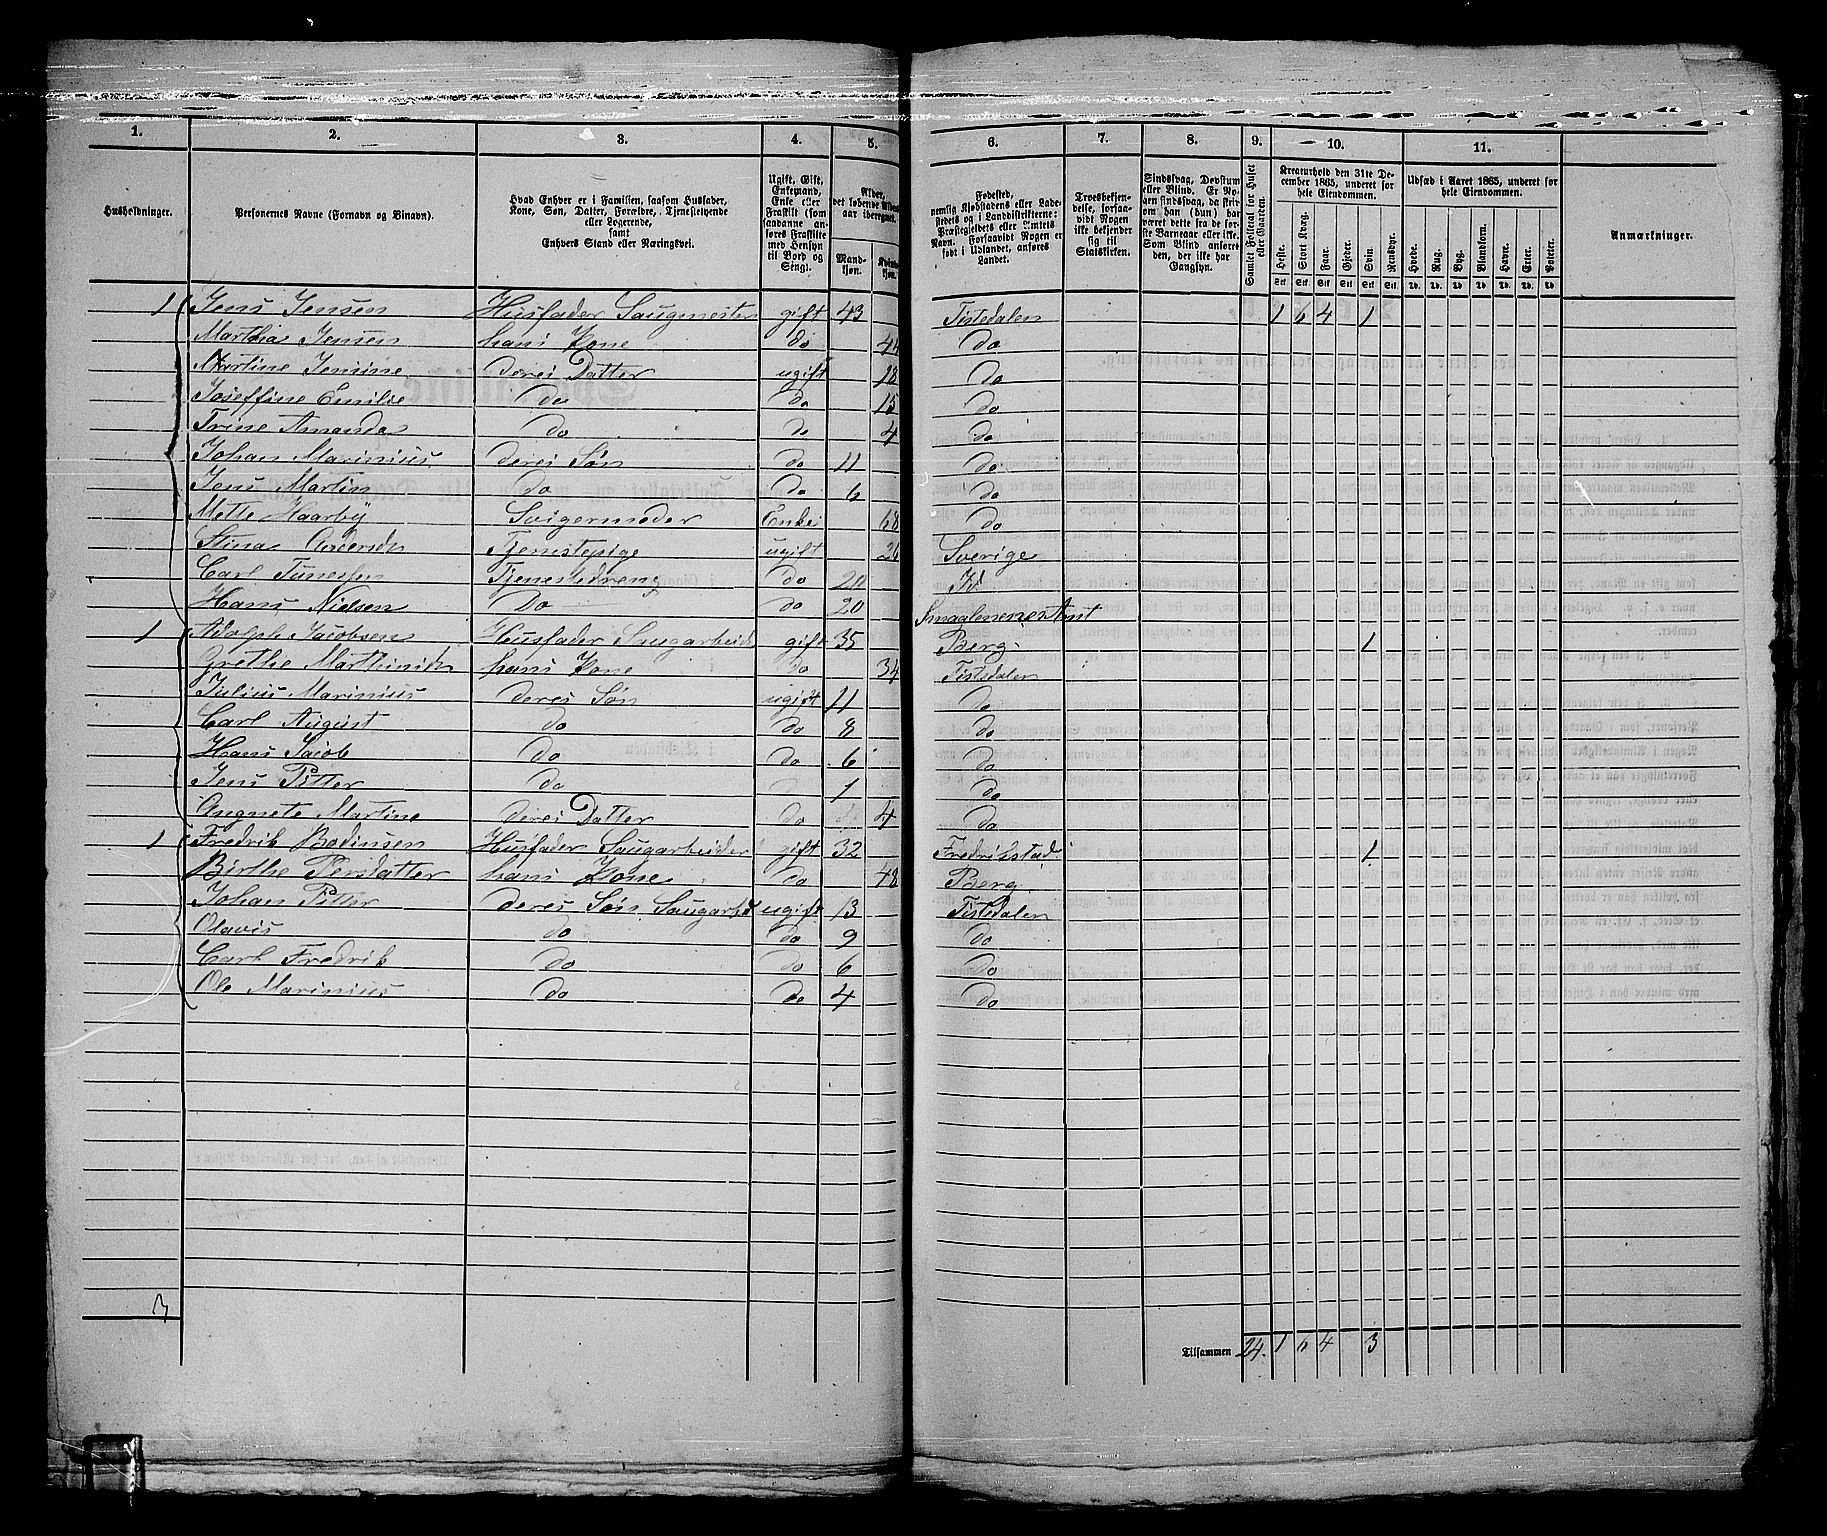 1. 2. 3. 4. 5. 6. 7. 8. 9. 10. 11.
Husholdninger.
Personernes Navne (Fornavn og Binavn).
Hvad Enhver er i Familien, saasom Husfader,
Kone, Søn, Datter, Forældre, Tjenestetyende
eller Logerende,
samt
Enhvers Stand eller Næringsvei.
Ugift, Gift,
Enkemand,
Enke eller
Fraskilt (som
saadanne an-
føres Fraskilte
med Hensyn
til Bord og
Seng).
Alder,
det løbende Alders-
aar iberegnet.
Mand-
kjøn.
Kvinde-
kjøn.
Fødested,
nemlig Kjøbstadens eller Lade-
stedets og i Landdistrikterne:
Præstegjeldets eller Amtets
Navn. Forsaavidt Nogen er
født i Udlandet, anføres
Landet.
Troesbekjen-
delse, forsaa-
vidt Nogen
ikke bekjender
sig til
Statskirken.
Sindssvag, Døvstum
eller Blind. Er No-
gen sindssvag, da stri-
om han (hun) har
været dette fra de før-
ste Barneaar eller ikke.
Som Blind anføres
den, der ikke har
Gangsyn.
Samlet Folketal for Huset
eller Gaarden.
Kreaturhold den 31te De-
cember 1865, underet for
hele Eiendommen.
Heste. Stort Kvæg. Faar. Gjeder. Svin. Rensdyr.
Udsæd i Aaret 1865, underet for
hele Eiendommen.
Hvede. Rug. Byg. Blandkorn. Havre. Erter. Poteter.
Anmærkninger.
1 Jens Jensen Husfader Saugmester gift 43 Tistedalen 1 6 4 1
Marthia Jensen hans Kone do 44 do
Martine Jensine deres Datter ugift 18 do
Joseffine Emilie do do 15 do
Trine Amanda do do 4 do
Johan Marinius deres Søn do 11 do
Jens Martin do do 6 do
Mette Haarby Svigermoder Enke 68 do
Stina Andersen Tjenestepige ugift Sverige
Carl Tunessen Tjenestedreng do
Hans Nielsen Do do 20 Smaalenenes Amt
1 Adolph Jacobsen Husfader Saugarbeider gift 35 Berg 1
Grethe Marthinsen hans Kone do 34 Tistedalen
Julius Marinius deres Søn ugift 11 do
Carl August do do 8 do
Hans Jacob do do 6 do
Jens Pitter do do 1 do
Angnete Martine deres Datter do 4 do
1 Fredrik Bodinsen Husfader Saugarbeider gift 32 Fredrikstad 1
Birthe Persdatter hans Kone do 48 Berg
Johan Pitter deres Søn Saugarbei ugift 13 Tistedalen
Olavis do do 9 do
Carl Fredrik do do 6 do
Ole Marinius do do 4 do
3
Tilsammen 24. 1 6 4 3